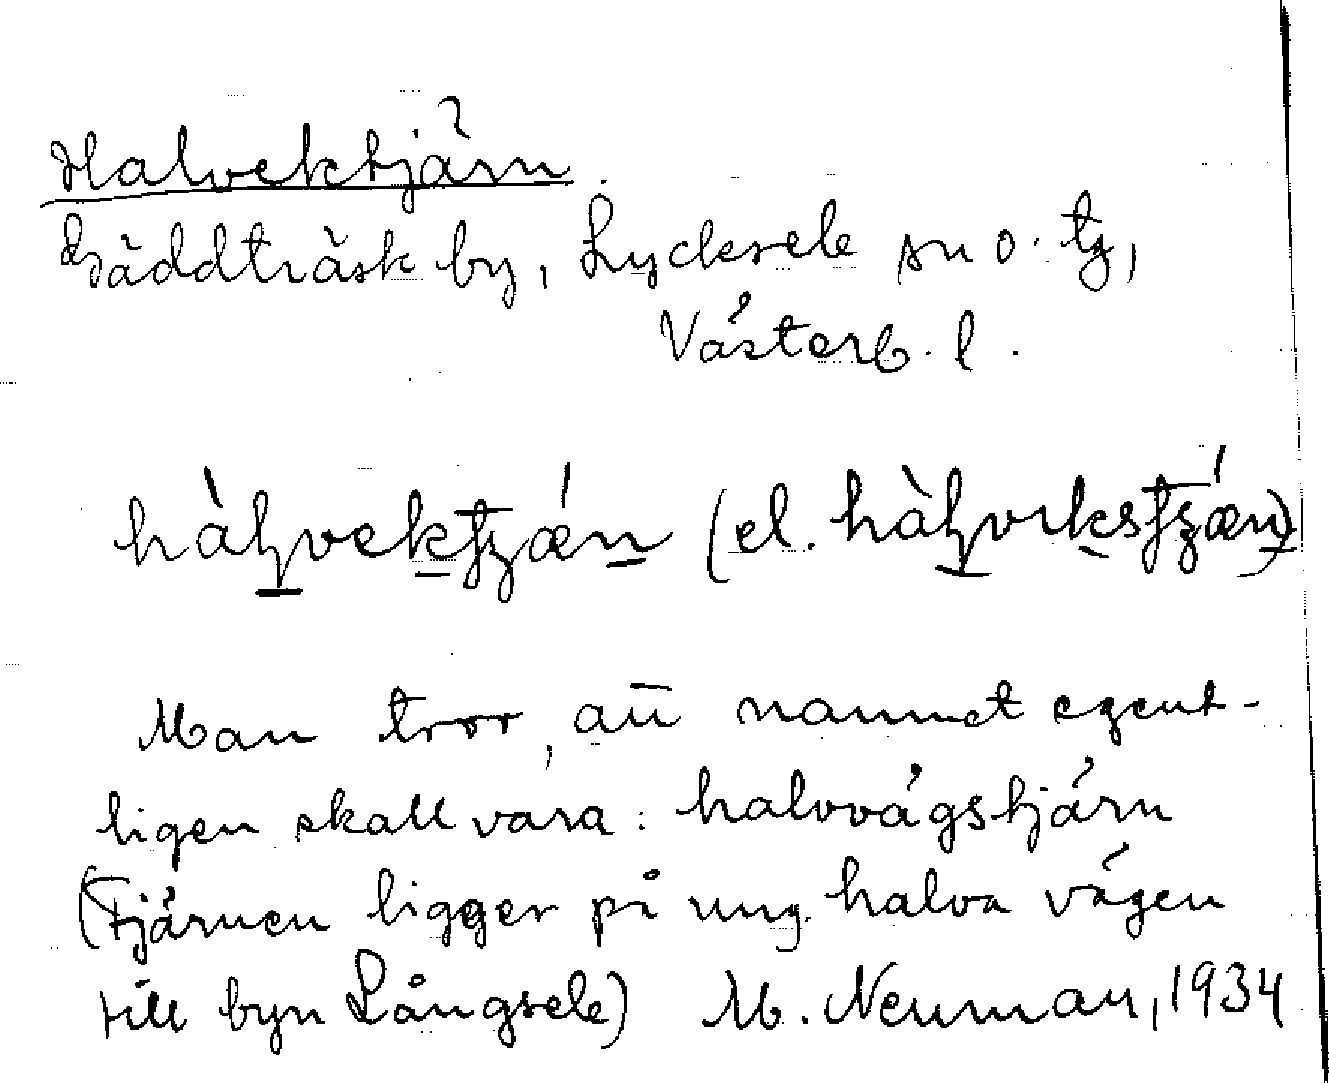 Halvektjärn
Gäddträsk by, Lycksele sn o. tg,
Västerb. l.
hàl̥vektʒǽn (el. hàl̥vɩkstʒǽn)
Man tror, att namnet egent-
ligen skall vara: halvvägstjärn
(Tjärnen ligger på ung. halva vägen
till byn Långsele) M. Neuman, 1934